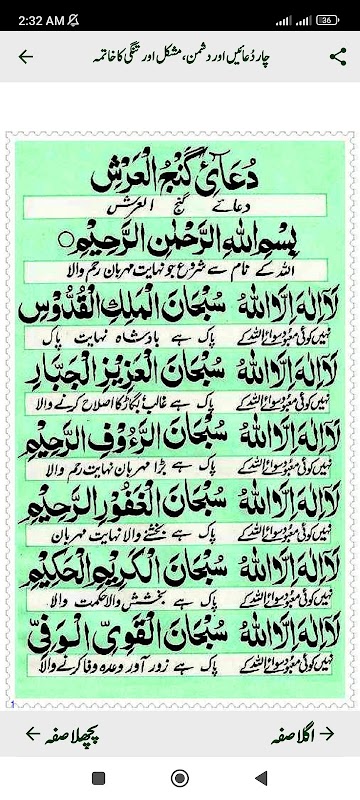 2:32 AM 36
چار دُعائیں اور دشمن، مشکل اور تنگی کا خاتمہ
دُعَائِ گَنْجُ الْعَرْشِ
دعائے گنج العرش
بِسْمِ اللهِ الرَّحْمٰنِ الرَّحِيْمِ
اللہ کے نام سے شروع جو نہایت مہربان رحم والا
لَآ اِلٰهَ اِلَّا اللهُ سُبْحَانَ الْمَلِكِ الْقُدُّوْسِ
نہیں کوئی معبود سوائے اللہ کے پاک ہے بادشاہ نہایت پاک
لَآ اِلٰهَ اِلَّا اللهُ سُبْحَانَ الْعَزِيْزِ الْجَبَّارِ
نہیں کوئی معبود سوائے اللہ کے پاک ہے غالب بگاڑ کا اصلاح کرنے والا
لَآ اِلٰهَ اِلَّا اللهُ سُبْحَانَ الرَّءُوْفِ الرَّحِيْمِ
نہیں کوئی معبود سوائے اللہ کے پاک ہے بڑا مہربان نہایت رحم والا
لَآ اِلٰهَ اِلَّا اللهُ سُبْحَانَ الْغَفُوْرِ الرَّحِيْمِ
نہیں کوئی معبود سوائے اللہ کے پاک ہے بخشنے والا نہایت مہربان
لَآ اِلٰهَ اِلَّا اللهُ سُبْحَانَ الْكَرِيْمِ الْحَكِيْمِ
نہیں کوئی معبود سوائے اللہ کے پاک ہے بخشش والا حکمت والا
لَآ اِلٰهَ اِلَّا اللهُ سُبْحَانَ الْقَوِيِّ الْوَفِيِّ
نہیں کوئی معبود سوائے اللہ کے پاک ہے زور آور وعدہ وفا کرنے والا
1
اگلا صفہ پچھلا صفہ